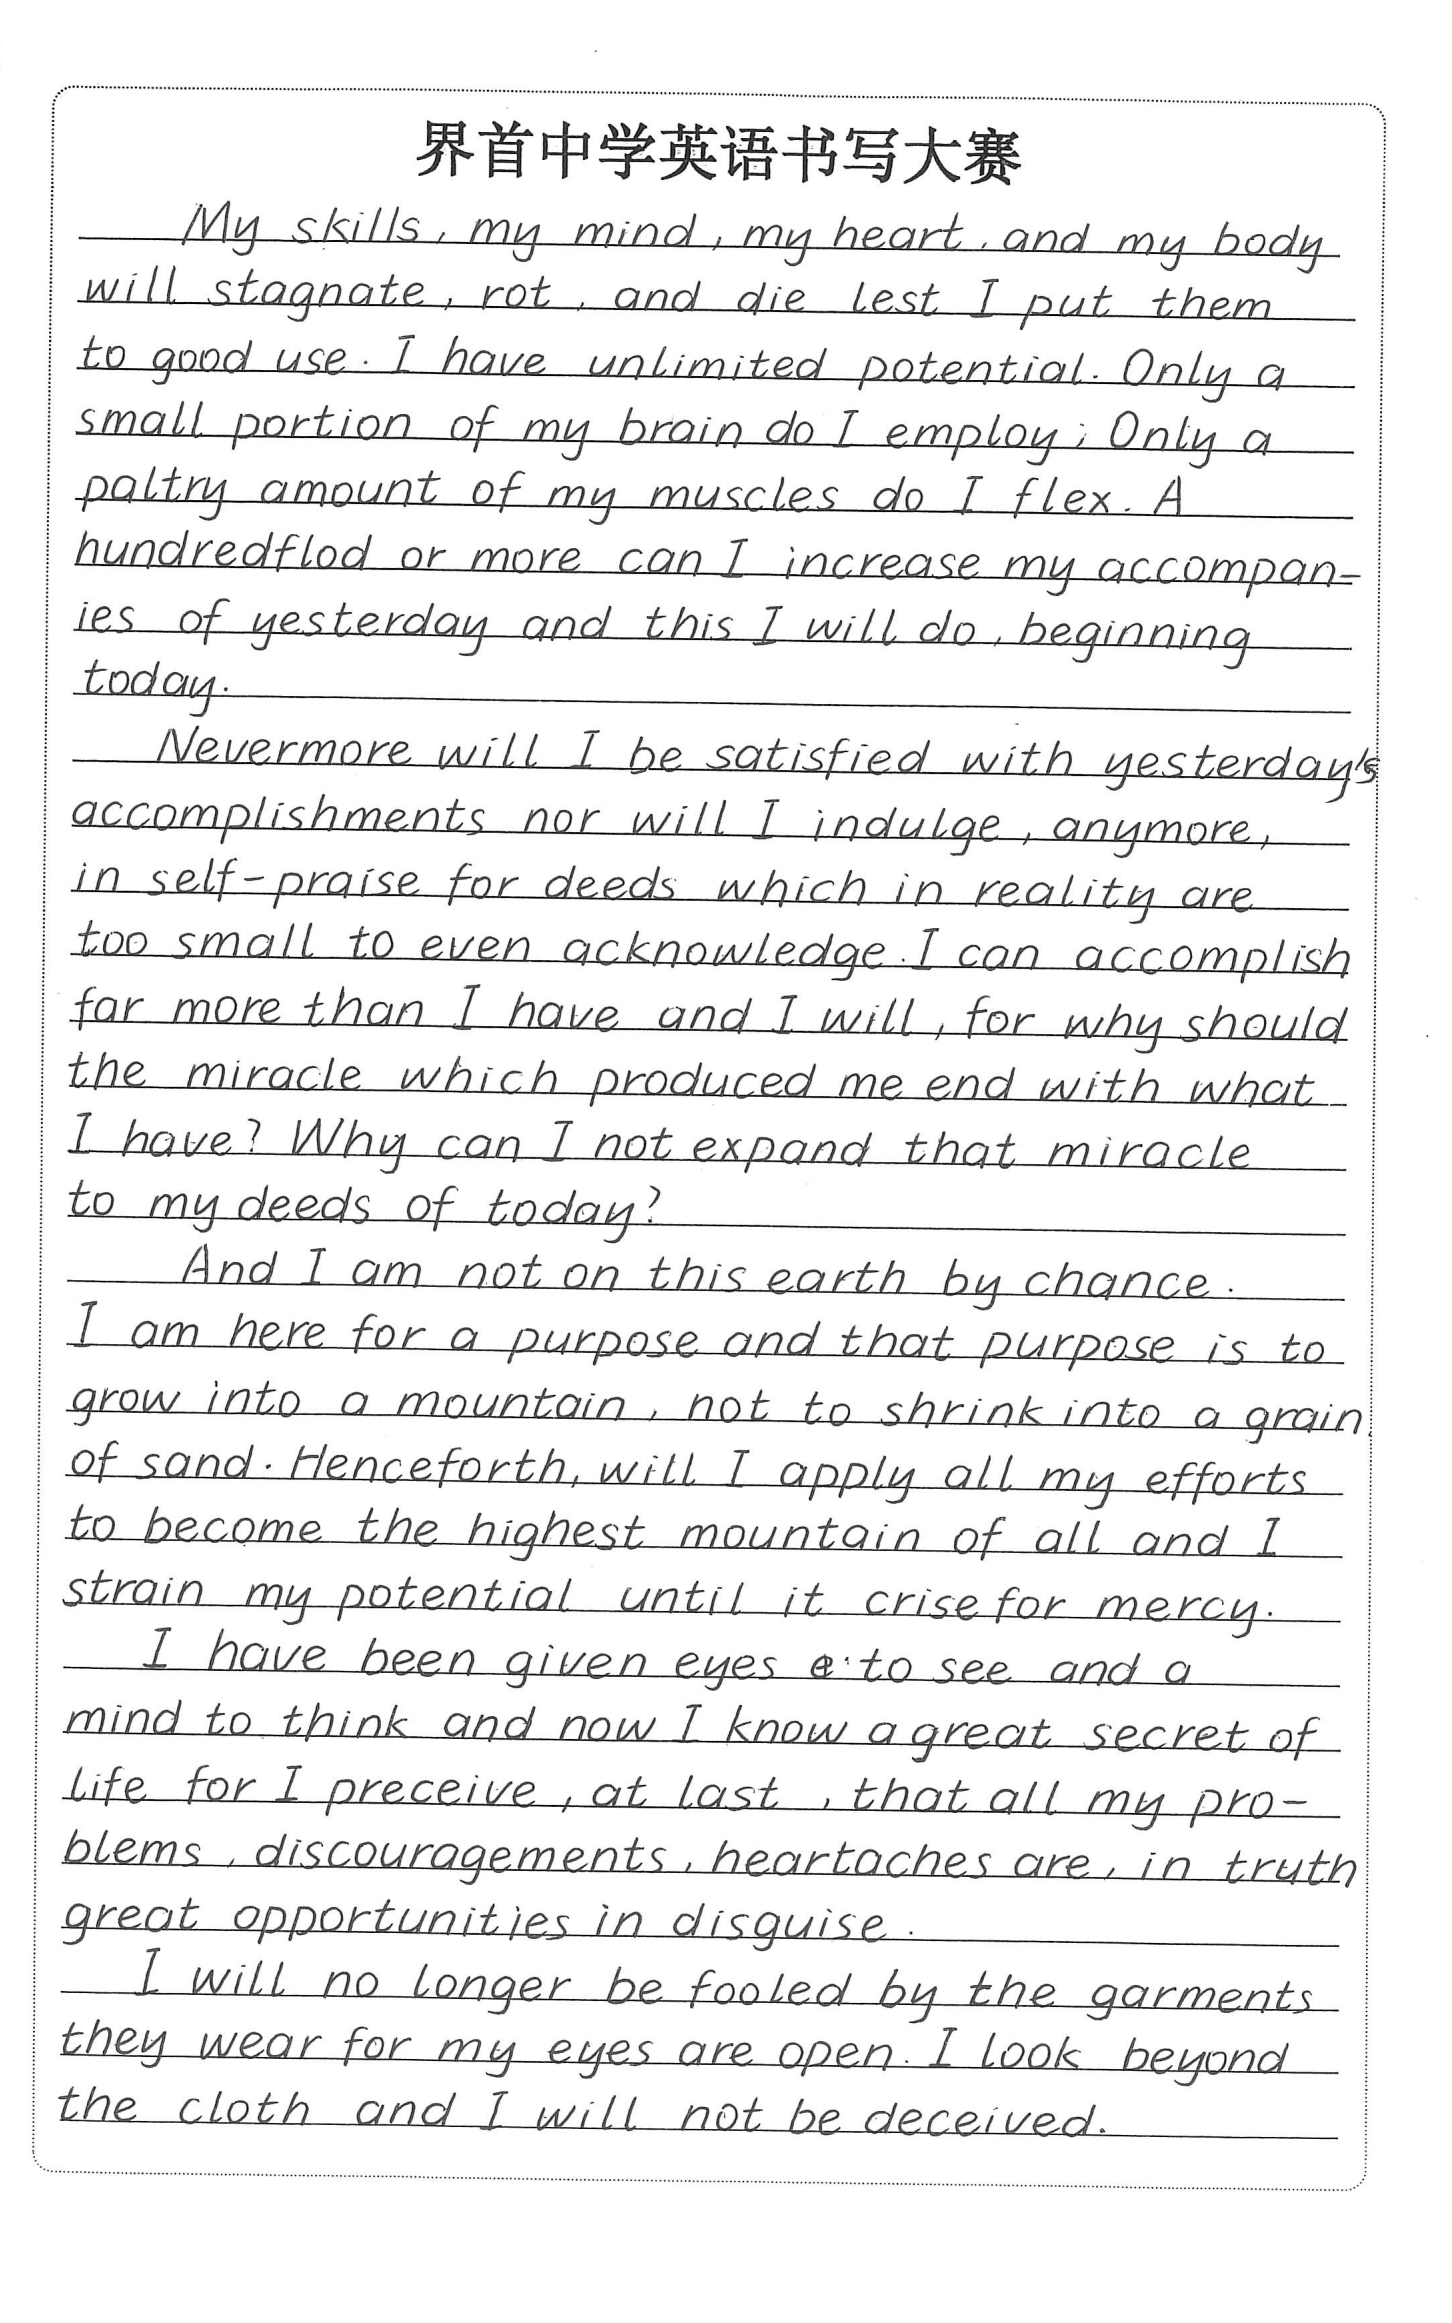 界首中学英语书写大赛
My skills, my mind, my heart, and my body
will stagnate, rot, and die lest I put them
to good use. I have unlimited potential. Only a
small portion of my brain do I employ; Only a
paltry amount of my muscles do I flex. A
hundredflod or more can I increase my accompan-
ies of yesterday and this I will do, beginning
today.
Nevermore will I be satisfied with yesterday's
accomplishments nor will I indulge, anymore,
in self-praise for deeds which in reality are
too small to even acknowledge. I can accomplish
far more than I have and I will, for why should
the miracle which produced me end with what
I have? Why can I not expand that miracle
to my deeds of today?
And I am not on this earth by chance.
I am here for a purpose and that purpose is to
grow into a mountain, not to shrink into a grain
of sand. Henceforth, will I apply all my efforts
to become the highest mountain of all and I
strain my potential until it crise for mercy.
I have been given eyes to see and a
mind to think and now I know a great secret of
life for I preceive, at last, that all my pro-
blems, discouragements, heartaches are, in truth
great opportunities in disguise.
I will no longer be fooled by the garments
they wear for my eyes are open. I look beyond
the cloth and I will not be deceived.